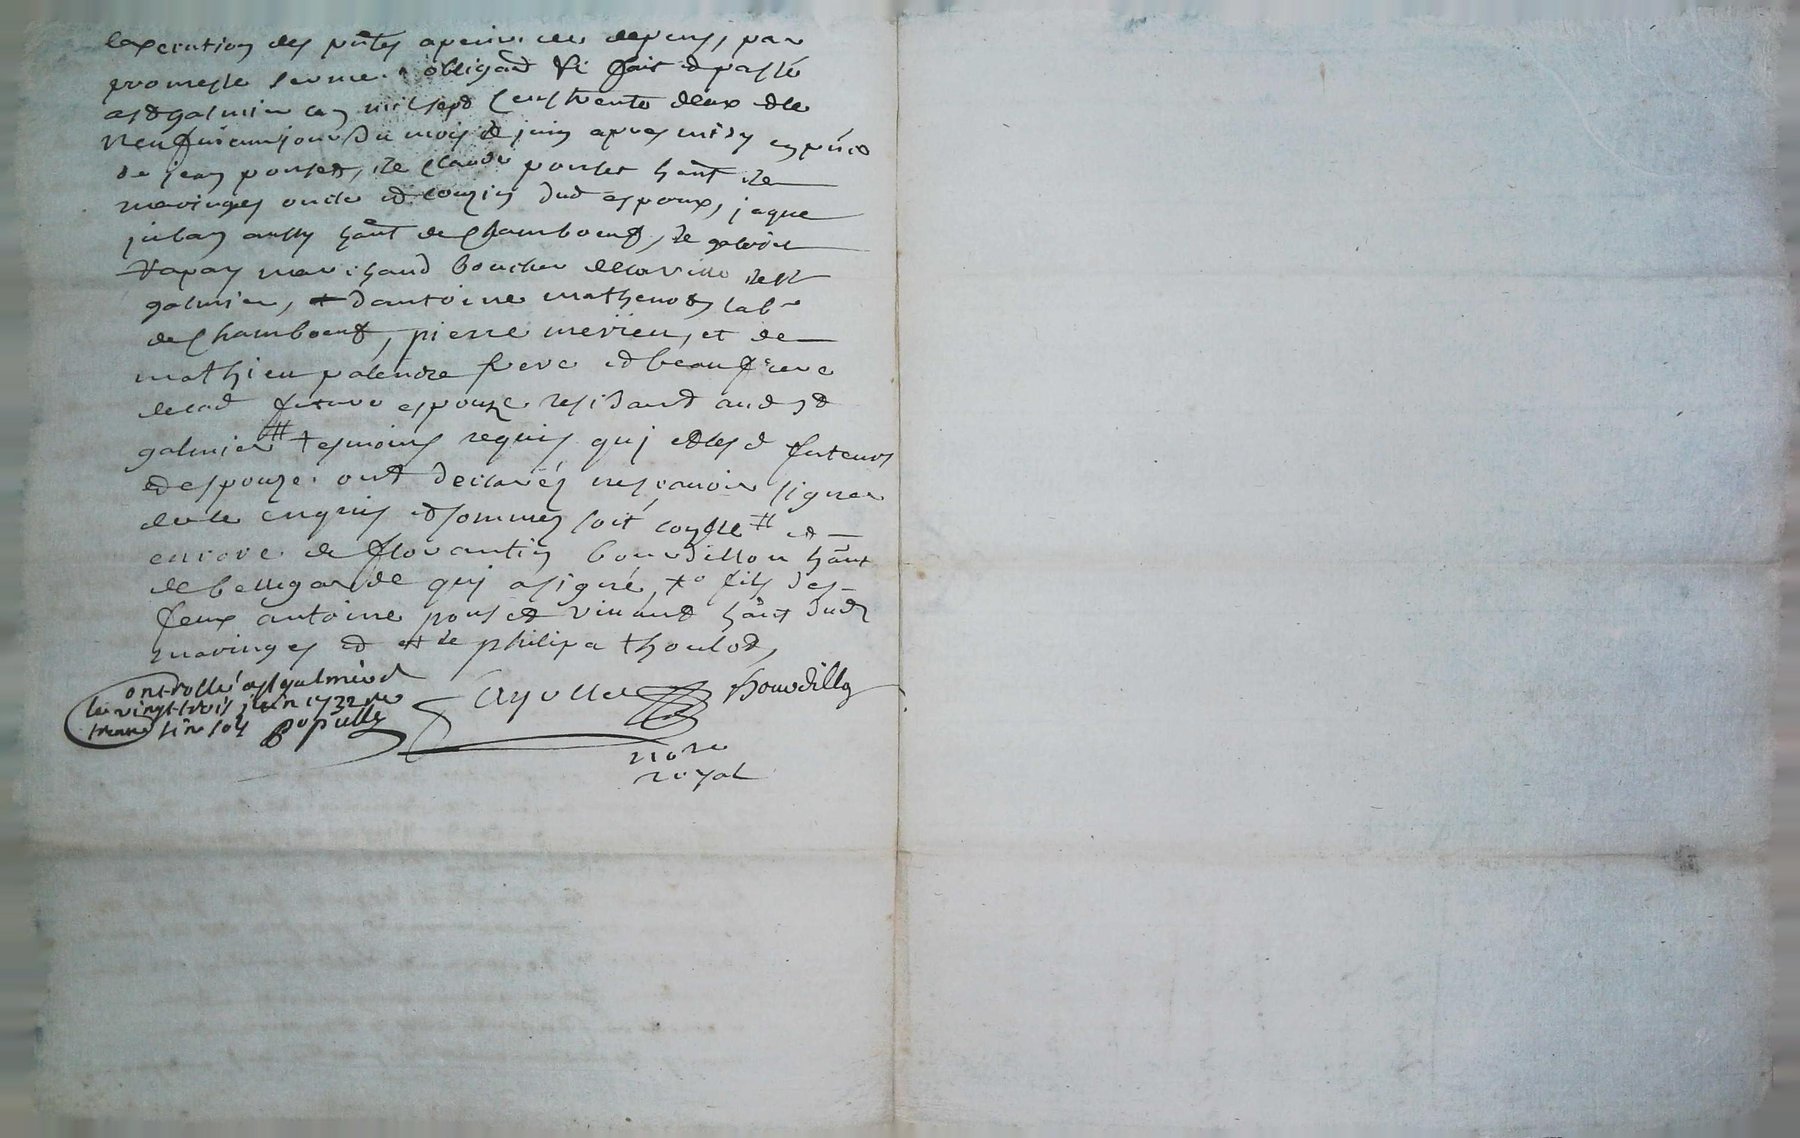 lexecution des pntes a peine de depens, par
promesse serment obligaõn &c fait et passé
a st galmier l'an mil sept cens trente deux et le
neufvieme jour du mois de juin apres midy en pñce
de jean ponset, de claude ponset hãnt de
maringes oncle et cousin dud espoux, jaque
julan aussy hãnt de Chambœuf, de
marchand boucher de la ville de st
galmier, d'antoine mathenod labr
de Chambœuf, pierre merieu, et de
mathieu palendre frere et beaufrere
de lad future espouze residant aud st
galmier # tesmoins requis qui et lesd futeurs
et espouze ont declarés ne sçavoir signer
de ce enquis et sommés soit conlle # et
encore de florantin bourdillon hãnt
de bellegarde qui a signé, fils des
feux antoine ponset vivant hãnt dud
maringes et de philipa thoulod,
Controllé a st galmier
le vingt trois juin 1732
sols
Bourdillon
nore
royal